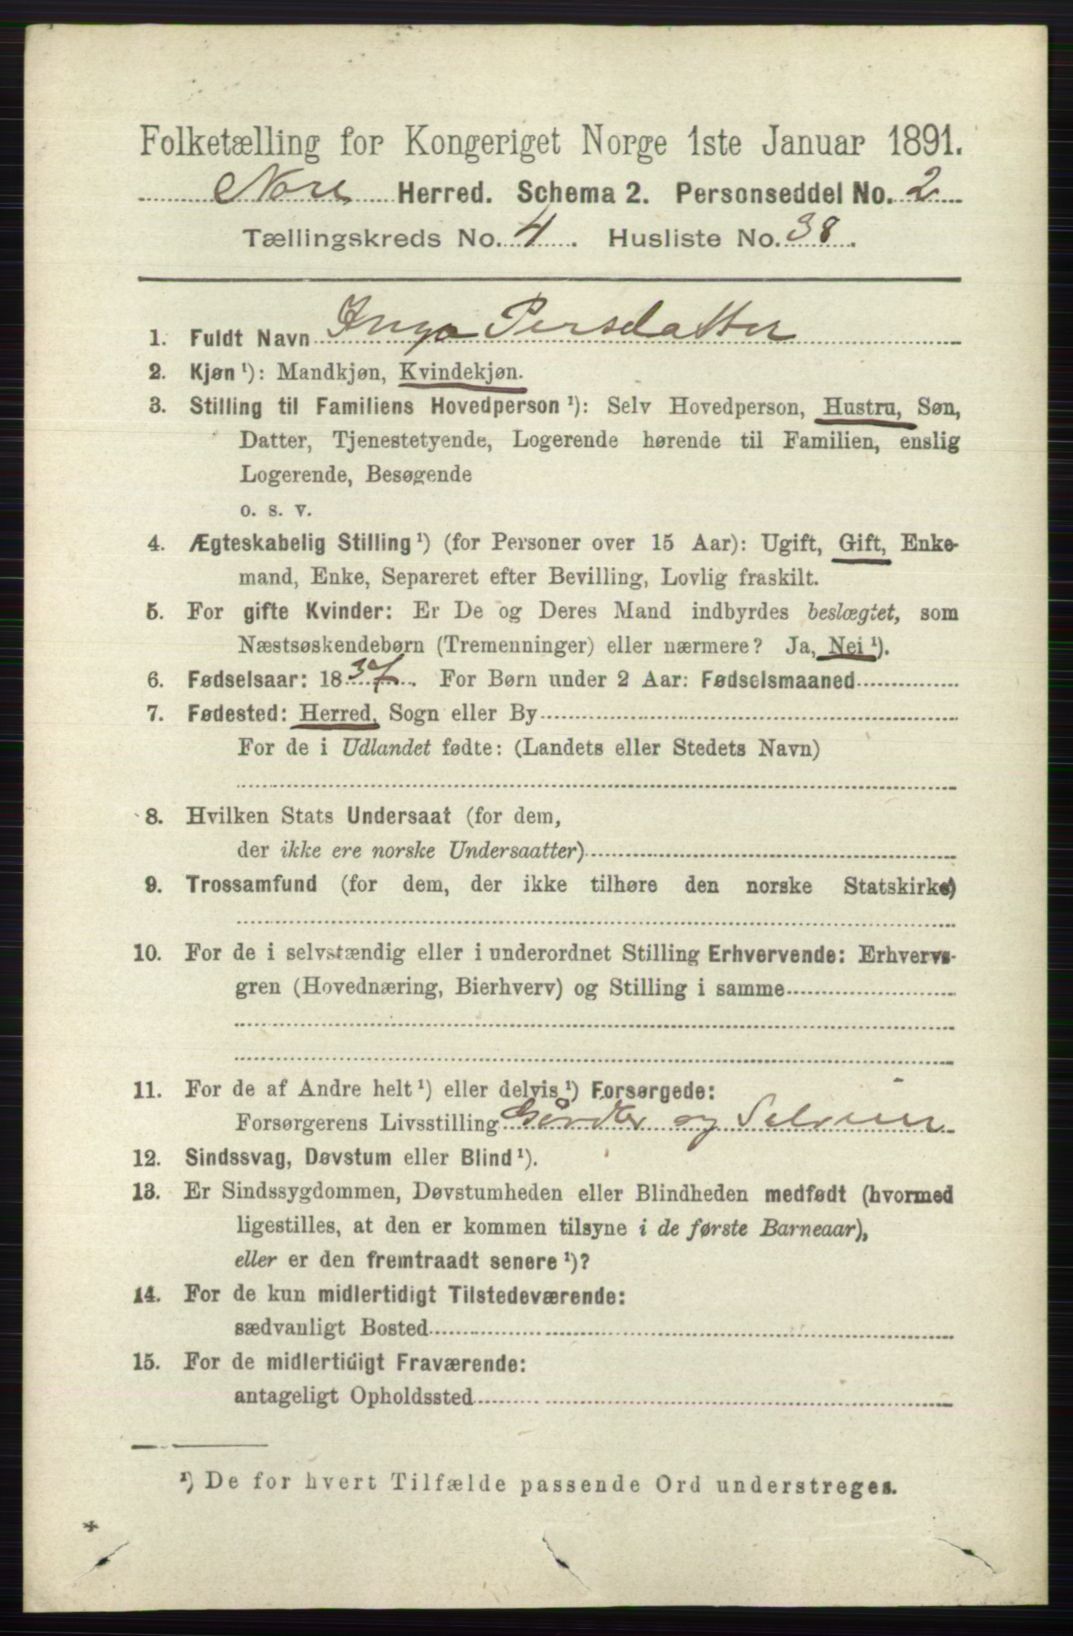 Folketælling for Kongeriget Norge 1ste Januar 1891.
Nore Herred. Schema 2. Personseddel No. 2
Tællingskreds No. 4. Husliste No. 38.
1. Fuldt Navn Inga Persdatter
2. Kjøn ¹): Mandkjøn, Kvindekjøn.
3. Stilling til Familiens Hovedperson ¹): Selv Hovedperson, Hustru, Søn,
Datter, Tjenestetyende, Logerende hørende til Familien, enslig
Logerende, Besøgende
o. s. v.
4. Ægteskabelig Stilling ¹) (for Personer over 15 Aar): Ugift, Gift, Enke-
mand, Enke, Separeret efter Bevilling, Lovlig fraskilt.
5. For gifte Kvinder: Er De og Deres Mand indbyrdes beslægtet, som
Næstsøskendebørn (Tremenninger) eller nærmere? Ja, Nei ¹).
6. Fødselsaar: 1837. For Børn under 2 Aar: Fødselsmaaned
7. Fødested: Herred, Sogn eller By
For de i Udlandet fødte: (Landets eller Stedets Navn)
8. Hvilken Stats Undersaat (for dem,
der ikke ere norske Undersaatter)
9. Trossamfund (for dem, der ikke tilhøre den norske Statskirke)
10. For de i selvstændig eller i underordnet Stilling Erhvervende: Erhvervs-
gren (Hovednæring, Bierhverv) og Stilling i samme
11. For de af Andre helt ¹) eller delvis ¹) Forsørgede:
Forsørgerens Livsstilling og Selveier
12. Sindssvag, Døvstum eller Blind ¹).
13. Er Sindssygdommen, Døvstumheden eller Blindheden medfødt (hvormed
ligestilles, at den er kommen tilsyne i de første Barneaar),
eller er den fremtraadt senere ¹)?
14. For de kun midlertidigt Tilstedeværende:
sædvanligt Bosted
15. For de midlertidigt Fraværende:
antageligt Opholdssted
¹) De for hvert Tilfælde passende Ord understreges.